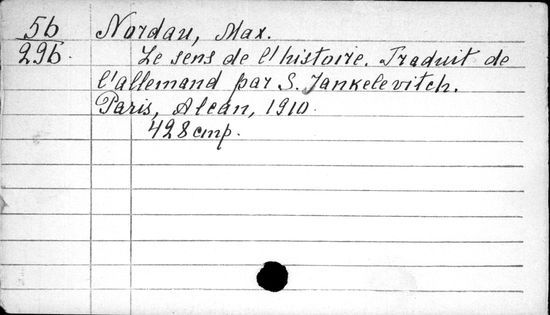 56 Nordau, Max.
296. Le sens de l'histoire. Traduit de
l'allemand par S. Jankelevitch.
Paris, Alcan, 1910.
428 стр.